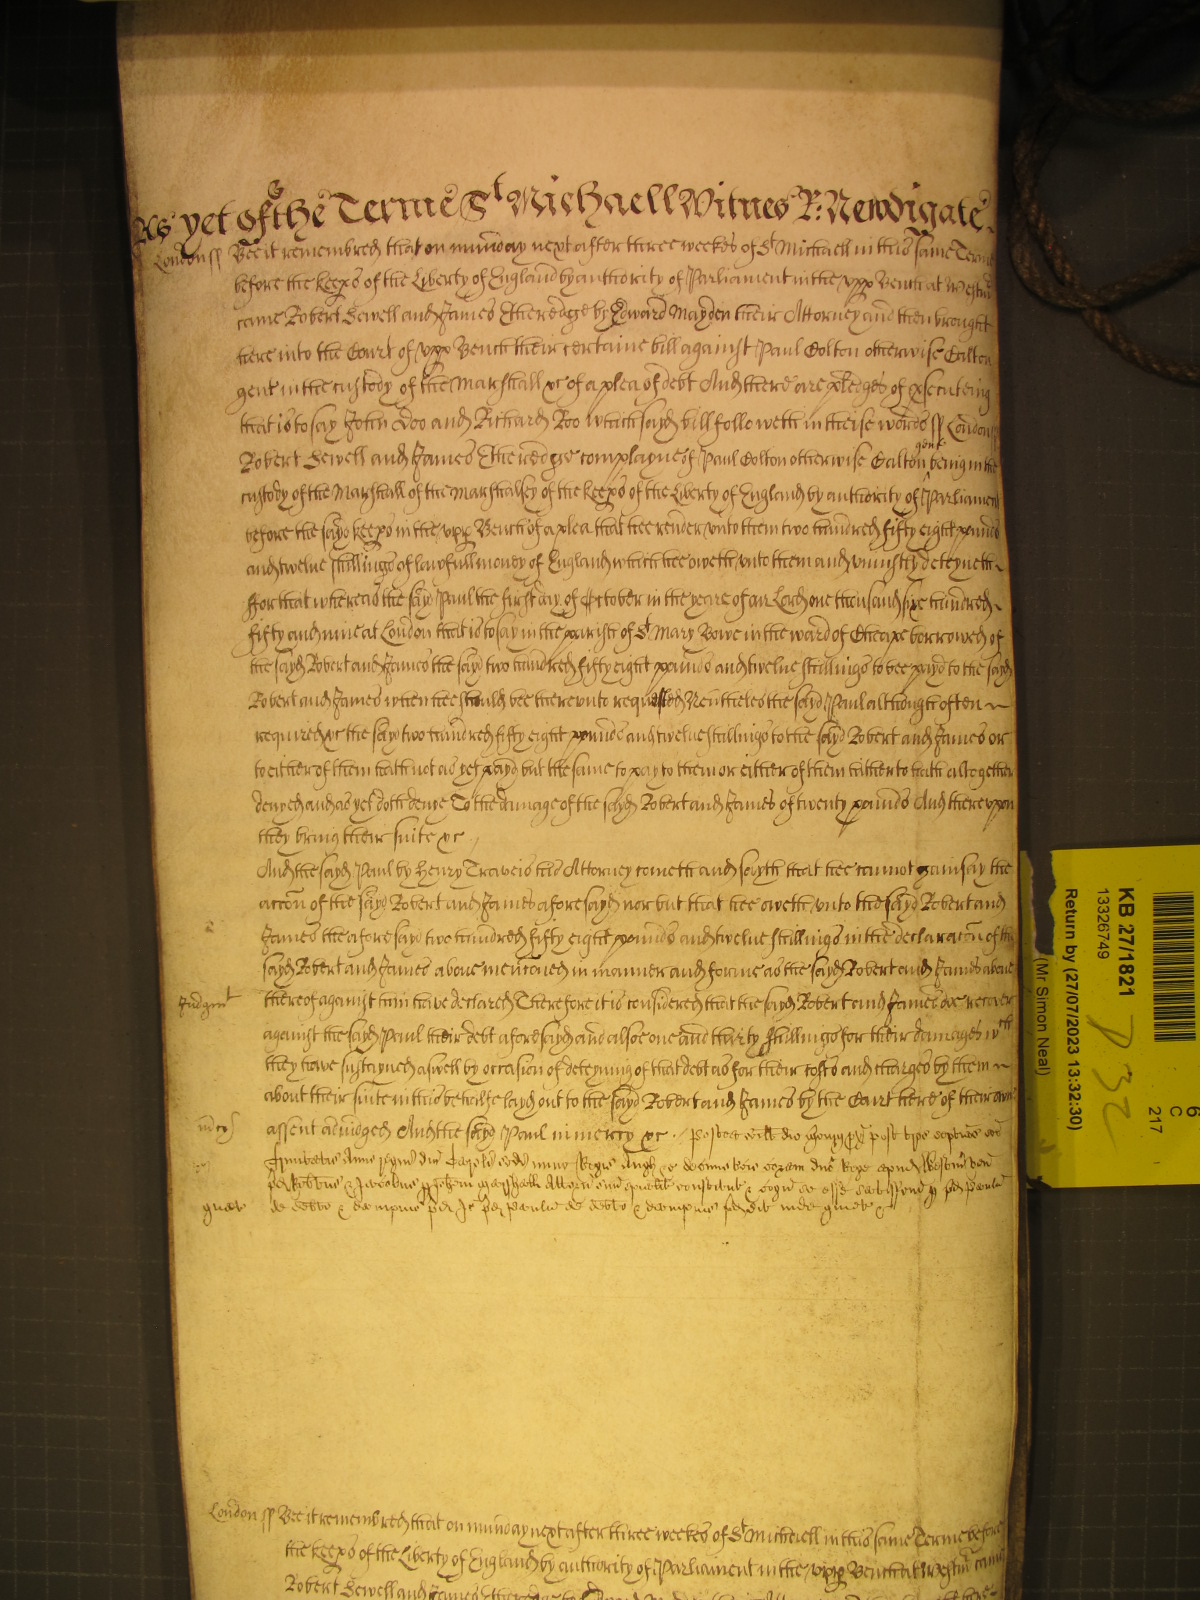 As yet of the Terme St Michaell Witnes R: Newdigate
London ss Bee it remembred that on munday next after three weekes of St Michaell in this same Terme
before the keeps of the Liberty of England by authority of Parliament in the upp Bench at Westmr
came Robert Sewell and James Etheredge by Edward Mayden their Attorney and then brought
here into the Court of upp Bench their certaine bill against Paul Dolton otherwise Dalton
gent in the custody of the Marshall &c of a plea of debt And there are pledges of psecuting
that is to say John Doo and Richard Roo which sayd bill followeth in theise words ss London ss
Robert Sewell and James Etheredge complayne of Paul Dolton otherwise Dalton gent being in the
custody of the Marshall of the Marshalsey of the keeps of the Liberty of England by authority of Parliament
before the sayd keeps in the upp Bench of a plea that hee render unto them two hundred fifty eight pounds
and twelve shillings of lawfull money of England which hee oweth unto them and uniustly deteyneth
ffor that whereas the sayd Paul the first day of October in the yeare of our Lord one thousand sixe hundred
fifty and nine at London that is to say in the parish of St Mary Bowe in the ward of Cheape borrowed of
the sayd Robert and James the sayd two hundred fifty eight pounds and twelve shillings to bee payd to the sayd
Robert and James when hee should bee thereunto requested Neutheles the sayd Paul although often
required &c the sayd two hundred fifty eight pounds and twelve shillings to the sayd Robert and James or
to either of them hath not as yet payd but the same to pay to them or either of them hitherto hath altogether
denyed and as yet doth denye To the damage of the sayd Robert and James of twenty pounds And thereupon
they bring their suite &c
And the sayd Paul by Henry Travers his Attorney cometh and sayth that hee cannot gainsay the
accon of the sayd Robert and James aforesayd nor but that hee oweth unto the sayd Robert and
James the aforesayd two hundred fifty eight pounds and twelve shillings in the declaracon of the
sayd Robert and James above menconed in manner and forme as the sayd Robert and James above
Judgmt thereof against him have declared Therefore it is considered that the sayd Robert and James doe recover
against the sayd Paul their debt aforesayd and alsoe one and thirty shillings for their damages wch
they have susteyned aswell by occasion of deteyning of that debt as for their costs and charges by them
about their suite in this behalfe layd out to the sayd Robert and James by the Court here of their owne
mcy assent adiudged And the sayd Paul in mercy &c postea scilt die
Trinitatis Anno regni dni Caroli scdi nunc Regis Angl &c
de debto & dampnis
KB 27/1821
13326749
Return by (27/07/2023 13:32:30)
(Mr Simon Neal)
C
217
London ss Bee it remembred that on munday next after three weekes of St Michaell in this same Terme before
the keeps of the Liberty of England by authority of Parliament in the upp Bench at Westmr came
Robert Sewell and James Etheredge by